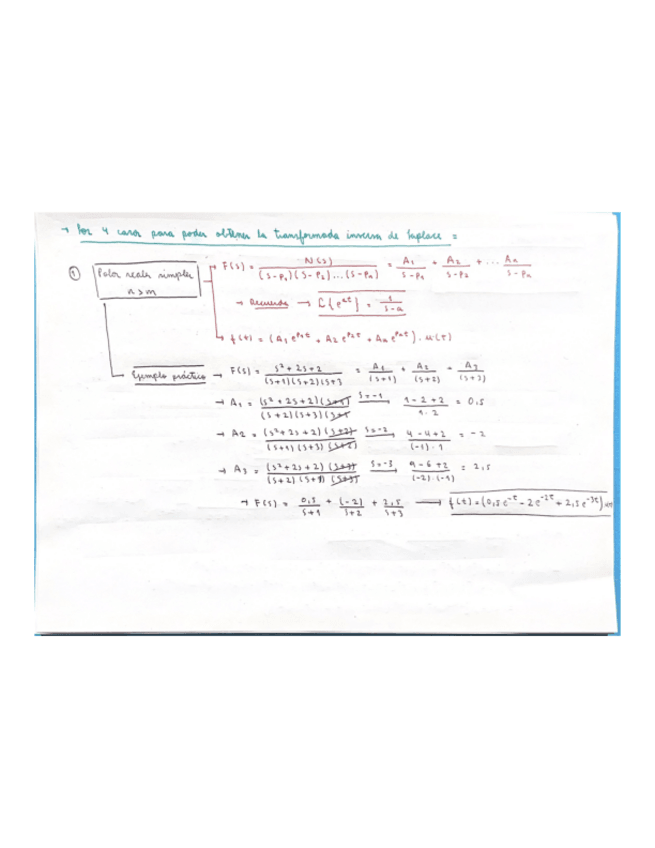 → Los 4 casos para poder obtener la transformada inversa de Laplace =
① Polos reales simples n>m → F(s) = N(s) / (s-p₁)(s-p₂)...(s-pₙ) = A₁/(s-p₁) + A₂/(s-p₂) + ... Aₙ/(s-pₙ)
→ Recuerda → L{e^at} = 1/(s-a)
→ f(t) = (A₁e^p₁t + A₂e^p₂t + Aₙe^pₙt) · u(t)
Ejemplo práctico → F(s) = s²+2s+2 / (s+1)(s+2)(s+3 = A₁/(s+1) + A₂/(s+2) + A₃/(s+3)
→ A₁ = (s²+2s+2)(s+1) / (s+2)(s+3)(s+1 s=-1 → 1-2+2 / 1·2 = 0,5
→ A2 = (s²+2s+2)(s+2) / (s+1)(s+3)(s+2) s=-2 → 4-4+2 / (-1)·1 = -2
→ A3 = (s²+2s+2)(s+3) / (s+2)(s+1)(s+3) s=-3 → 9-6+2 / (-2)·(-1) = 2,5
→ F(s) = 0,5/s+1 + (-2)/s+2 + 2,5/s+3 → f(t)=(0,5e^-t -2e^-2t +2,5e^-3t)u(t)